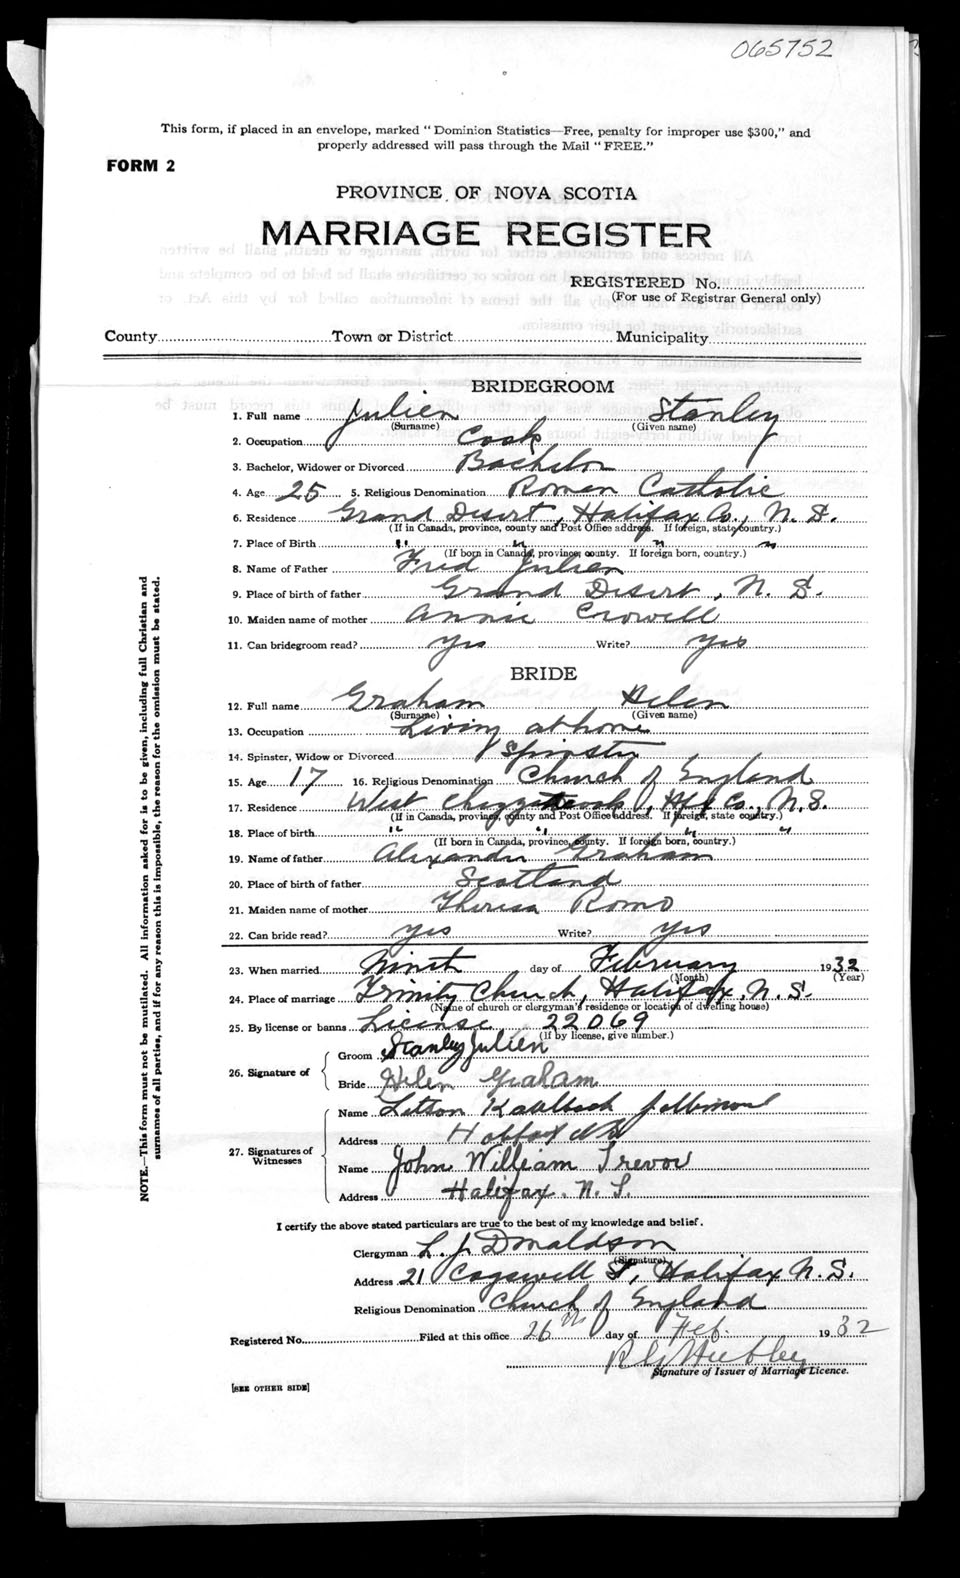 065752
This form, if placed in an envelope, marked "Dominion Statistics—Free, penalty for improper use $300," and
properly addressed will pass through the Mail "FREE."
FORM 2
PROVINCE OF NOVA SCOTIA
MARRIAGE REGISTER
REGISTERED No.
(For use of Registrar General only)
County Town or District Municipality
BRIDEGROOM
1. Full name Julien Stanley
(Surname) (Given name)
2. Occupation Cook
3. Bachelor, Widower or Divorced Bachelor
4. Age 25 5. Religious Denomination Roman Catholic
6. Residence Grand Desert, Halifax Co., N. S.
(If in Canada, province, county and Post Office address. If foreign, state country.)
7. Place of Birth " " " "
(If born in Canada, province, county. If foreign born, country.)
8. Name of Father Fred Julien
9. Place of birth of father Grand Desert, N. S.
10. Maiden name of mother Annie Crowell
11. Can bridegroom read? yes Write? yes
BRIDE
12. Full name Graham Helen
(Surname) (Given name)
13. Occupation Living at home
14. Spinster, Widow or Divorced Spinster
15. Age 17 16. Religious Denomination Church of England
17. Residence West Chezzetcook, Hfx Co., N. S.
(If in Canada, province, county and Post Office address. If foreign, state country.)
18. Place of birth " " " "
(If born in Canada, province, county. If foreign born, country.)
19. Name of father Alexander Graham
20. Place of birth of father Scotland
21. Maiden name of mother Theresa Romo
22. Can bride read? yes Write? yes
23. When married Ninth day of February 1932
(Month) (Year)
24. Place of marriage Trinity Church, Halifax, N. S.
(Name of church or clergyman's residence or location of dwelling house)
25. By license or banns License 22069
(If by license, give number.)
26. Signature of Groom Stanley Julien
Bride Helen Graham
27. Signatures of Witnesses Name Letson Kaulback
Address Halifax NS
Name John William Trevor
Address Halifax. N. S.
I certify the above stated particulars are true to the best of my knowledge and belief.
Clergyman L. J. Donaldson
(Signature)
Address 21 Cogswell St, Halifax N. S.
Religious Denomination Church of England
Registered No. Filed at this office 26th day of Feb. 1932
Hubley
Signature of Issuer of Marriage Licence.
[SEE OTHER SIDE]
NOTE.—This form must not be mutilated. All information asked for is to be given, including full Christian and
surnames of all parties, and if for any reason this is impossible, the reason for the omission must be stated.